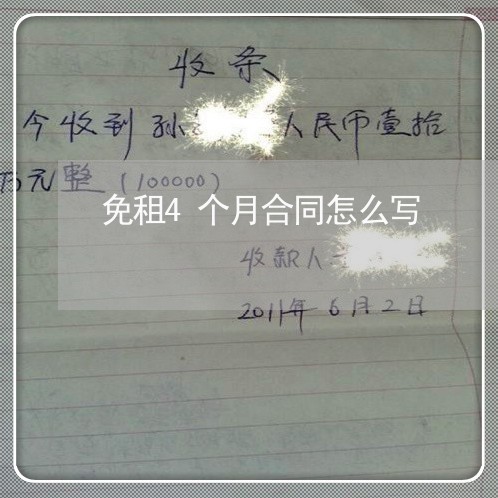 收条
今收到孙 人民币壹拾
万元整（100000）
免租4 个月合同怎么写
收款人
2011年6月2日